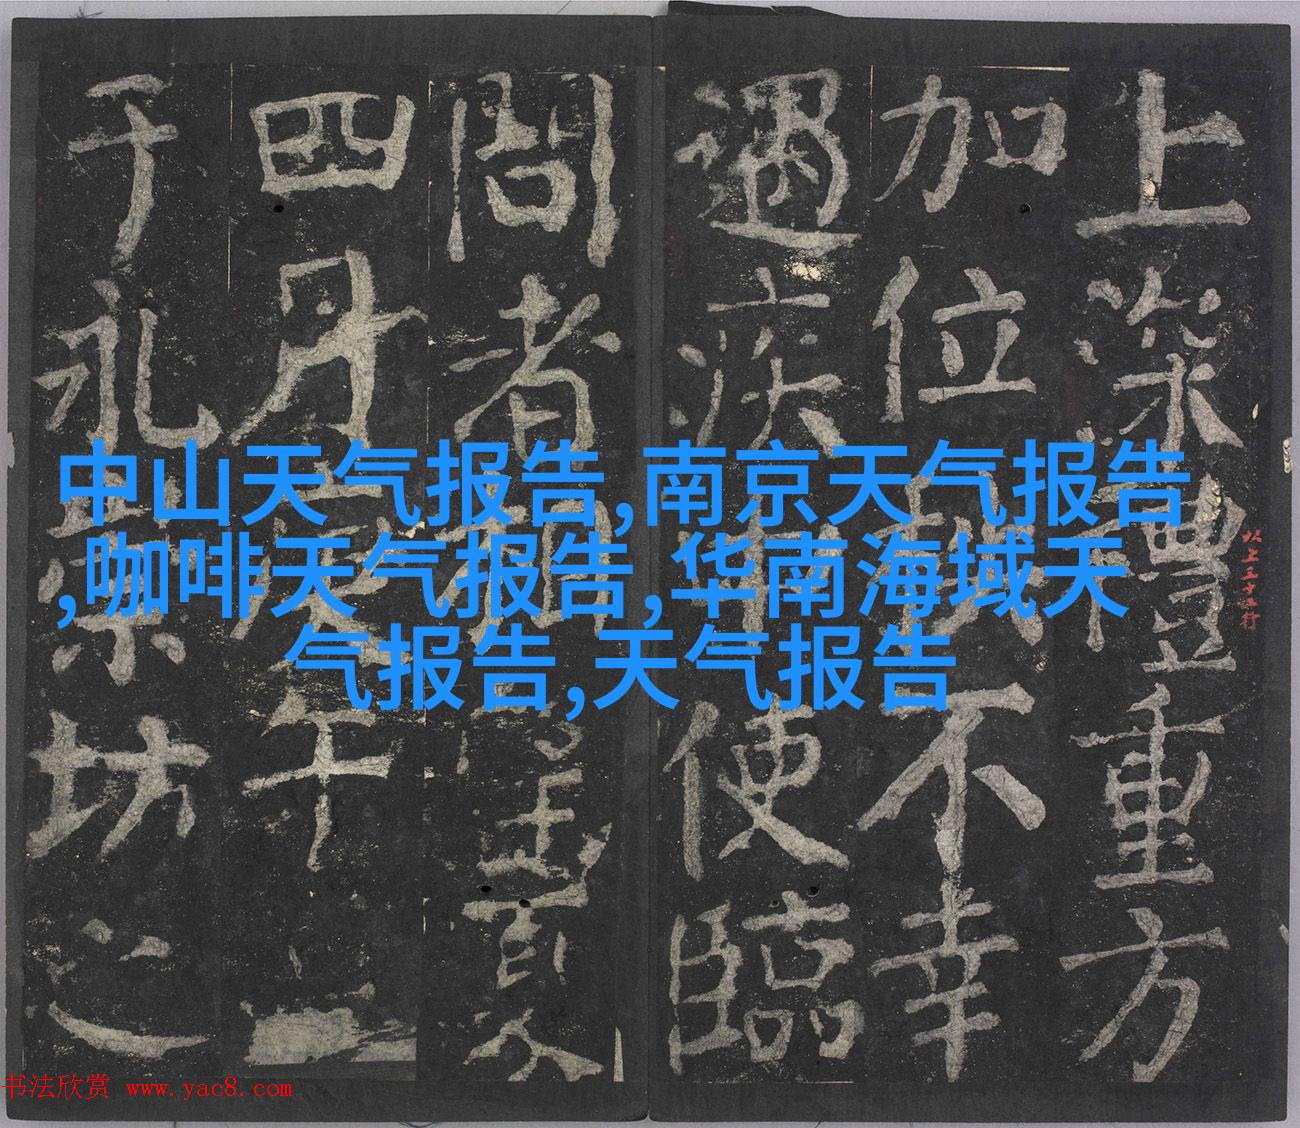 上深禮重方
加位不幸
遇疾使臨
問者相
四月午
于永樂坊之
以上五十五行
中山天气报告,南京天气报告
,咖啡天气报告,华南海域天
气报告,天气报告
书法欣赏 www.yac8.com